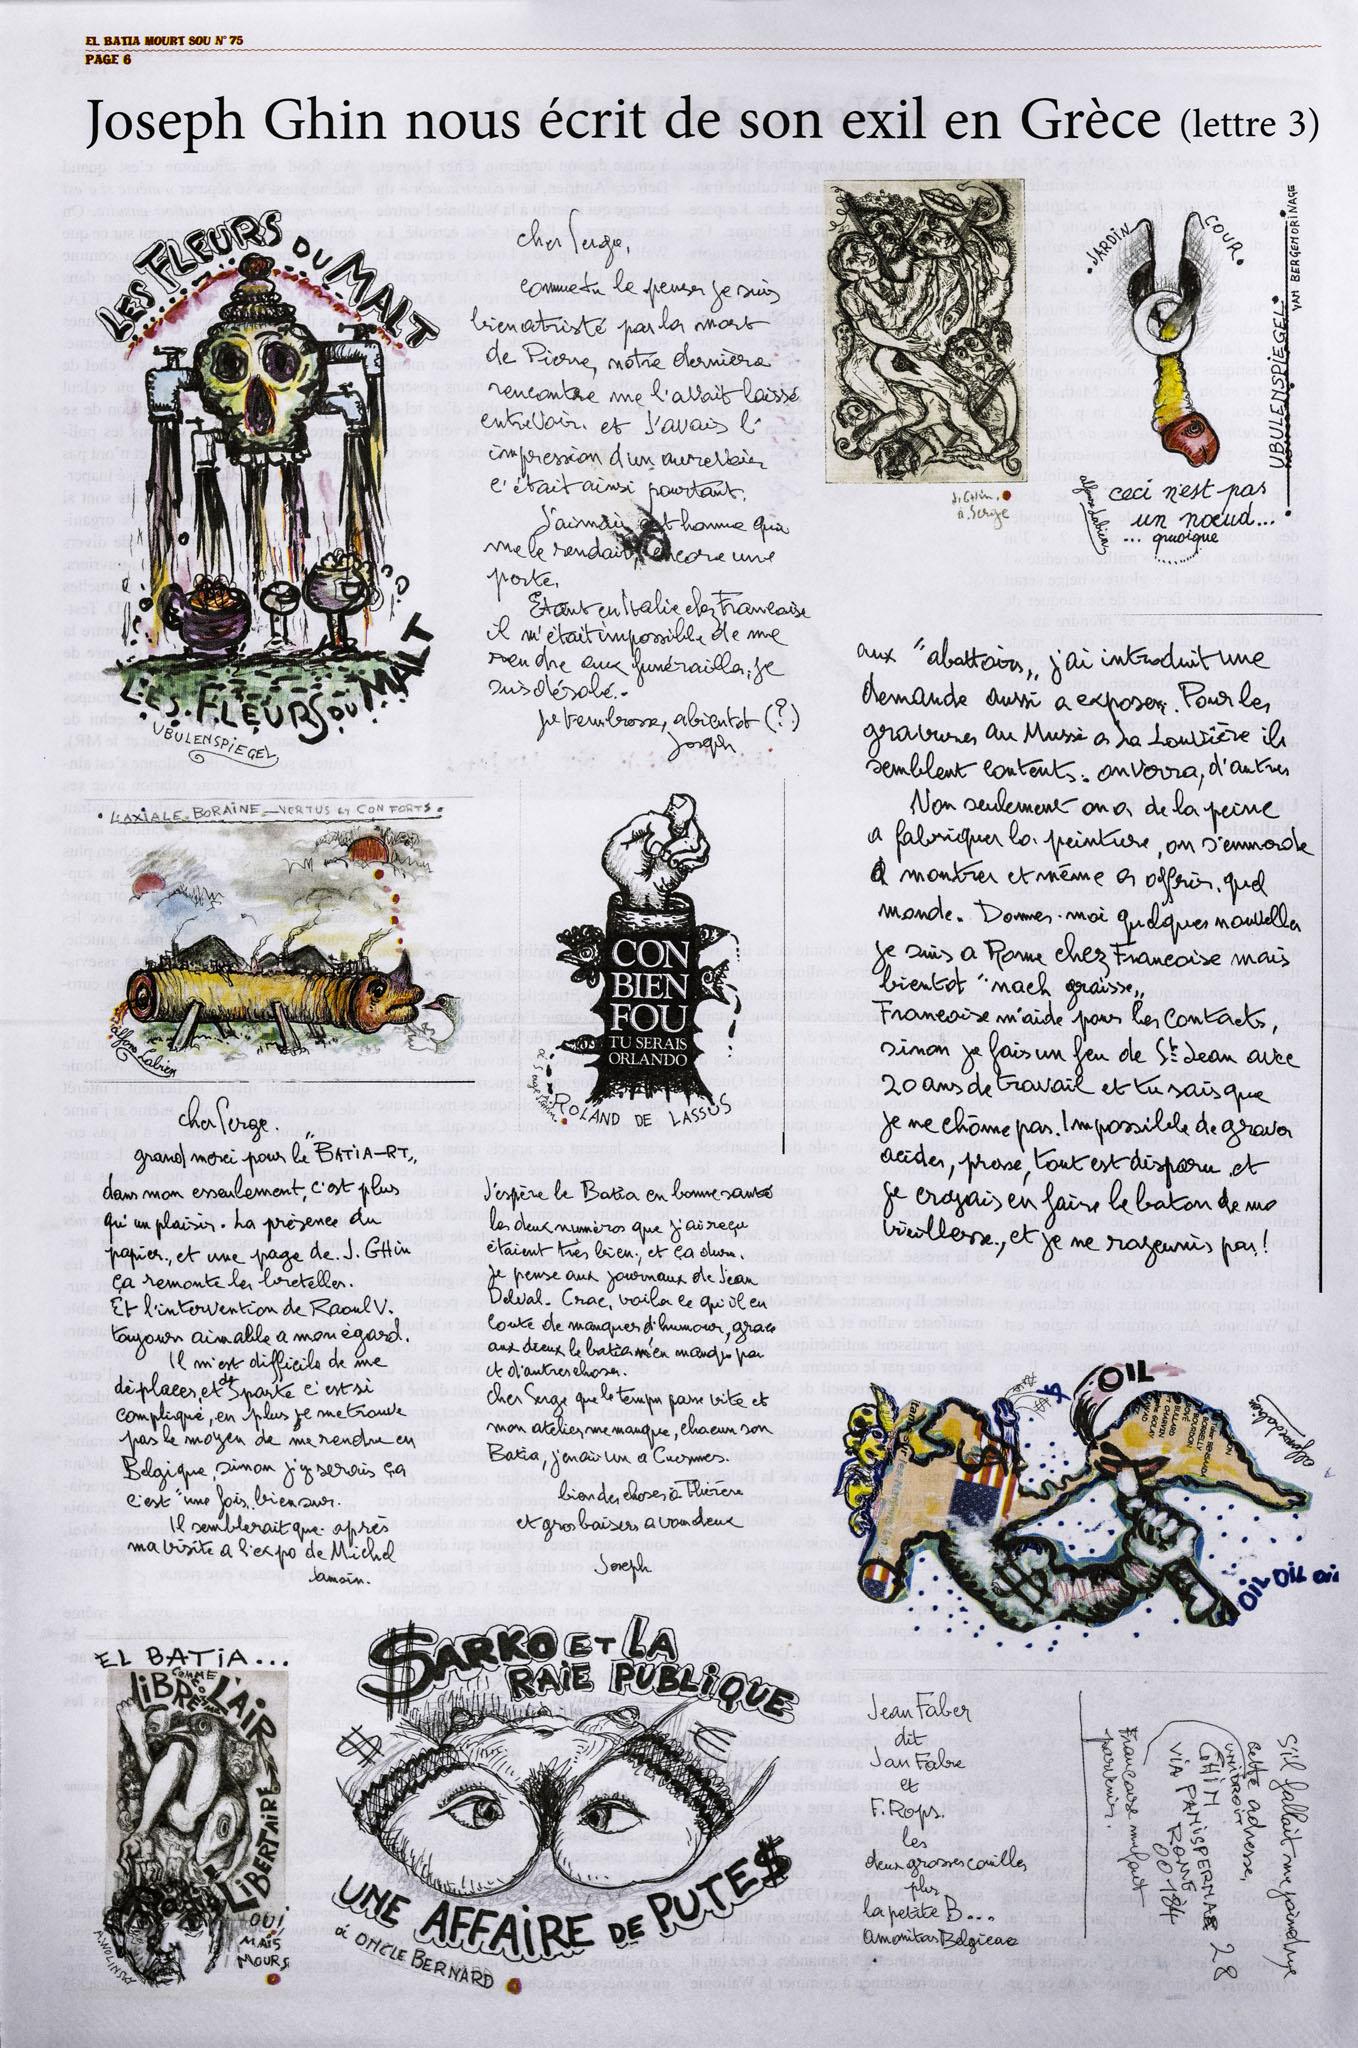 EL BATIA MOURT SOU N° 75
PAGE 6
Joseph Ghin nous écrit de son exil en Grèce (lettre 3)
LES FLEURS DU MALT
LES FLEURS DU MALT
UBULENSPIEGEL
cher Serge,
comme tu le penses je suis
bien attristé par la mort
de Pierre, notre dernière
rencontre me l'avait laissé
entrevoir. et j'avais l'
impression d'un aurevoir
c'était ainsi pourtant.
J'aimais cet homme qui
me le rendait encore une
perte.
Etant en Italie chez Francoise
il m'était impossible de me
rendre aux funérailles, je
suis désolé.
je t'embrasse, abientot (?)
Joseph
J. Ghin
à Serge
JARDIN
COUR
UBULENSPIEGEL
VAM BERGEMORINAGE
alfons Labien
ceci n'est pas
un nœud...
... quoique
LAXIALE BORAINE - VERTUS et CON FORTS.
alfons Labien
CON
BIEN
FOU
TU SERAIS
ORLANDO
ROLAND DE LASSUS
cher Serge.
grand merci pour le "BATIA-RT",
dans mon esseulement, c'est plus
qu'un plaisir. La présence du
papier, et une page de J. GHin
ça remonte les bretelles.
Et l'intervention de Raoul V.
toujours aimable a mon égard.
Il m'est difficile de me
déplacer, et de Sparte c'est si
compliqué, en plus je me trouve
pas le moyen de me rendre en
Belgique, sinon j'y serais ça
c'est "une fois, bien sur.
Il semblerait que après
ma visite a l'expo de Michel
Jamsin.
J'espère le Batia en bonne santé
les deux numéros que j'ai reçu
étaient très bien, et ça dure.
je pense aux journaux de Jean
Delval. Crac, voila ce qu'il en
coute de manquer d'humour, grace
aux dieux le batia n'en manque pas
et d'autres choses.
cher Serge que le temps passe vite et
mon atelier me manque, chacun son
Batia, j'en ai un a Cuesmes.
bien des choses à Thérère
et gros baisers a vous deux
Joseph
aux "abattoirs", j'ai introduit une
demande aussi a exposer. Pour les
gravures au Musée a La Louvière ils
semblent contents. on verra, d'autres
Non seulement on a de la peine
a fabriquer la peinture, on s'emmerde
a montrer et même a offrir. quel
monde. Donnes-moi quelques nouvelles
je suis a Rome chez Francoise mais
bientot "nach graisse",
Francoise m'aide pour les contacts,
sinon je fais un feu de St Jean avec
20 ans de travail et tu sais que
je ne chôme pas. Impossible de graver
acides, presse, tout est disparu et
je croyais en faire le baton de ma
vieillesse, et je ne rajeunis pas!
OIL
OIL OIL OIL
EL BATIA...
LIBRE COMME L'AIR
LIBERTAIRE
OUI
MAIS
MOURS
A. WOLINSKI
$ARKO ET LA
RAIE PUBLIQUE
UNE AFFAIRE DE PUTE$
à ONCLE BERNARD
Jean Faber
dit
Jan Fabre
et
F. Rops.
les
deux grosses couilles
plus
la petite B...
amanitas Belgicae
S'il fallait me joindre
cette adresse,
GHIN
VIA PANISPERNAE 28
ROME
00184
Francoise me fait
parvenir.